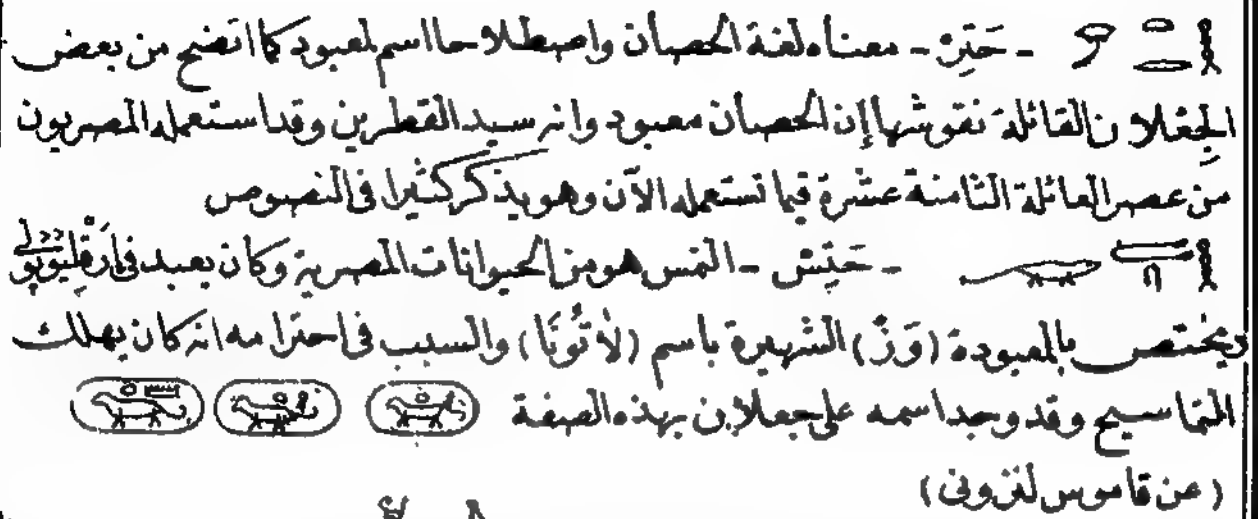 - حَتِرْ - معناه لغة الحصان واصطلاحا اسم لمعبود كما اتضح من بعض
الجِعْلان القائلة نقوشها إن الحصان معبود وانه سيد القطرين وقد استعمله المصريون
من عصر العائلة الثامنة عشرة فيما تستعمله الآن وهو يذكر كثيرا فى النصوص
- حَتِش - النمس هو من الحيوانات المصرية وكان يعبد فى ارَقْلِيُوْپُولى
ويختص بالمعبودة (وَزْ) الشهيرة باسم (لاتُونَا) والسبب فى احترامه انه كان يهلك
التماسيح وقد وجد اسمه على جعلان بهذه الصفة
(عن قاموس لنزونى)